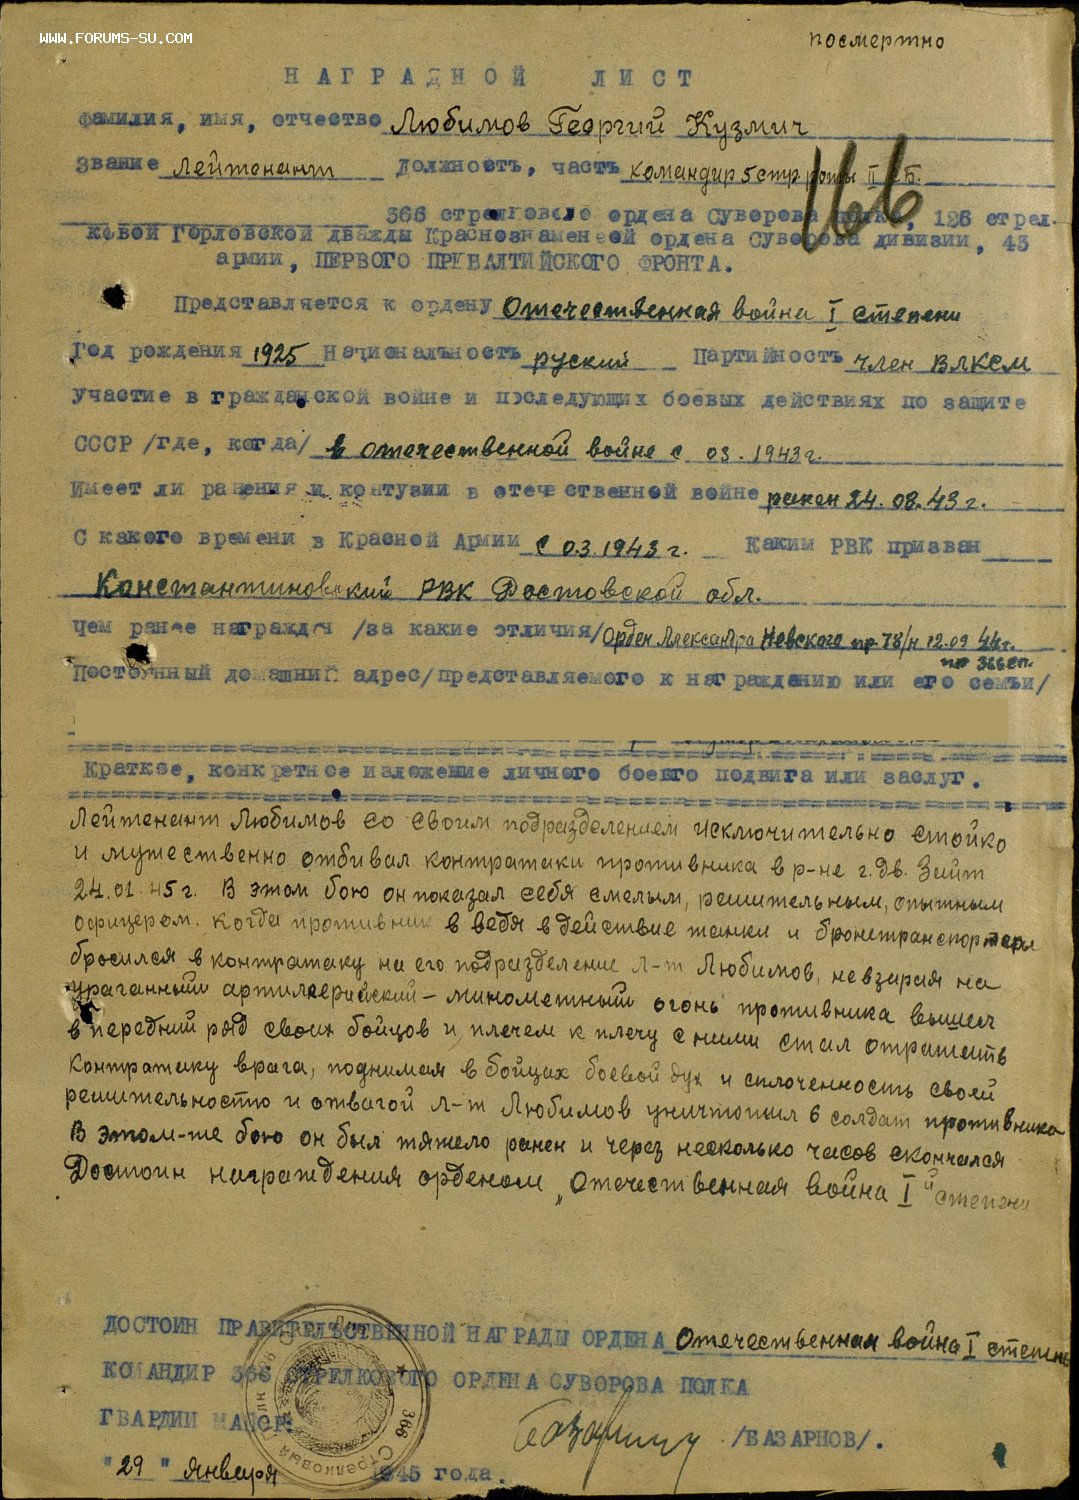 WWW.FORUMS-SU.COM
посмертно
НАГРАДНОЙ ЛИСТ
Фамилия, имя, отчество Любимов Георгий Кузмич
Звание лейтенант Должность, часть командир 5 стр роты II СБ.
166
366 стрелкового ордена Суворова полка, 126 стрел-
ковой Горловской дважды Краснознаменной ордена Суворова дивизии, 43
армии, ПЕРВОГО ПРИБАЛТИЙСКОГО ФРОНТА.
Представляется к ордену Отечественная война I степени
Год рождения 1925 Национальность руский Партийность член ВЛКСМ
участие в гражданской войне и последующих боевых действиях по защите
СССР /где, когда/ в отечественной войне с 03.1943г.
Имеет ли ранения и контузии в отечественной войне ранен 24.08.43г.
С какого времени в Красной Армии с 03.1943г. Каким РВК призван
Константиновский РВК Ростовской обл.
чем ранее награжден /за какие отличия/ Орден Александра Невского пр 78/н 12.09 44г.
по 366сп.
Постоянный домашний адрес/представляемого к награждению или его семьи/
Краткое, конкретное изложение личного боевого подвига или заслуг.
Лейтенант Любимов со своим подразделением исключительно стойко
и мужественно отбивал контратаки противника в р-не г. Дв. Зайт
24.01.45г. В этом бою он показал себя смелым, решительным, опытным
офицером. Когда противник в ведя в действие танки и бронетранспортеры
бросился в контратаку на его подразделение л-т Любимов, невзирая на
ураганный артилерийский-минометный огонь противника вышел
в передний ряд своих бойцов и плечем к плечу с ними стал отражать
контратаку врага, поднимая в бойцах боевой дух и сплоченность своей
решительностю и отвагой л-т Любимов уничтожил 6 солдат противника
В этом-же бою он был тяжело ранен и через несколько часов скончался
Достоин награждения орденом „Отечественная война I й степени
ДОСТОИН ПРАВИТЕЛЬСТВЕННОЙ НАГРАДЫ ОРДЕНА Отечественная война I степень
КОМАНДИР 366 СТРЕЛКОВОГО ОРДЕНА СУВОРОВА ПОЛКА
ГВАРДИИ МАЙОР:
/БАЗАРНОВ/.
"29" января 1945 года.
366 Стрелковый полк